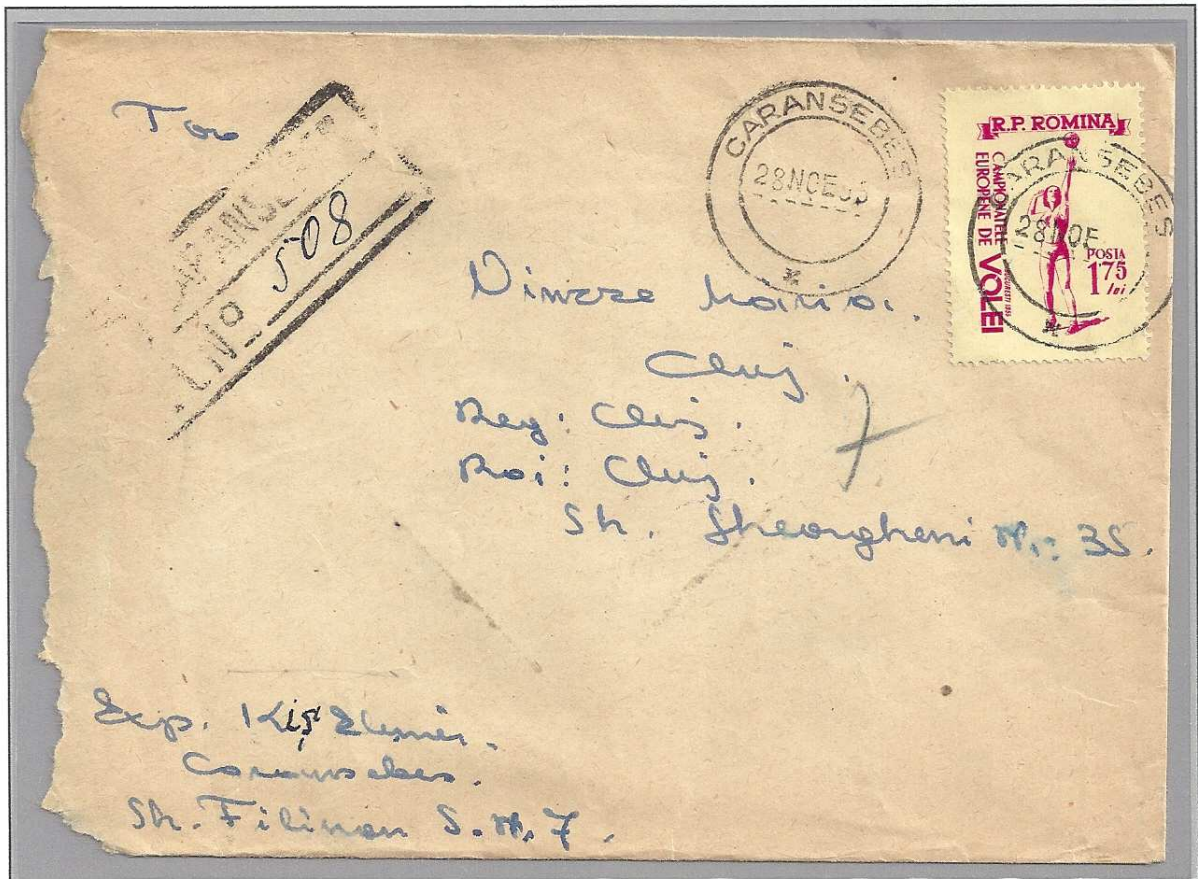 Tov
CARANSEBEȘ
No 508
CARANSEBES
28NOE55
R.P. ROMINA
CAMPIONATELE
EUROPENE DE VOLEI
BUCUREȘTI 1955
POSTA
175
lei
CARANSEBES
28NOE
Maria.
Cluj.
7
Reg: Cluj.
Roi: Cluj.
Str. Gheorgheni Nr: 35.
Exp. Kiș
Caransebes.
Str. Filimon S. Nr. 7.